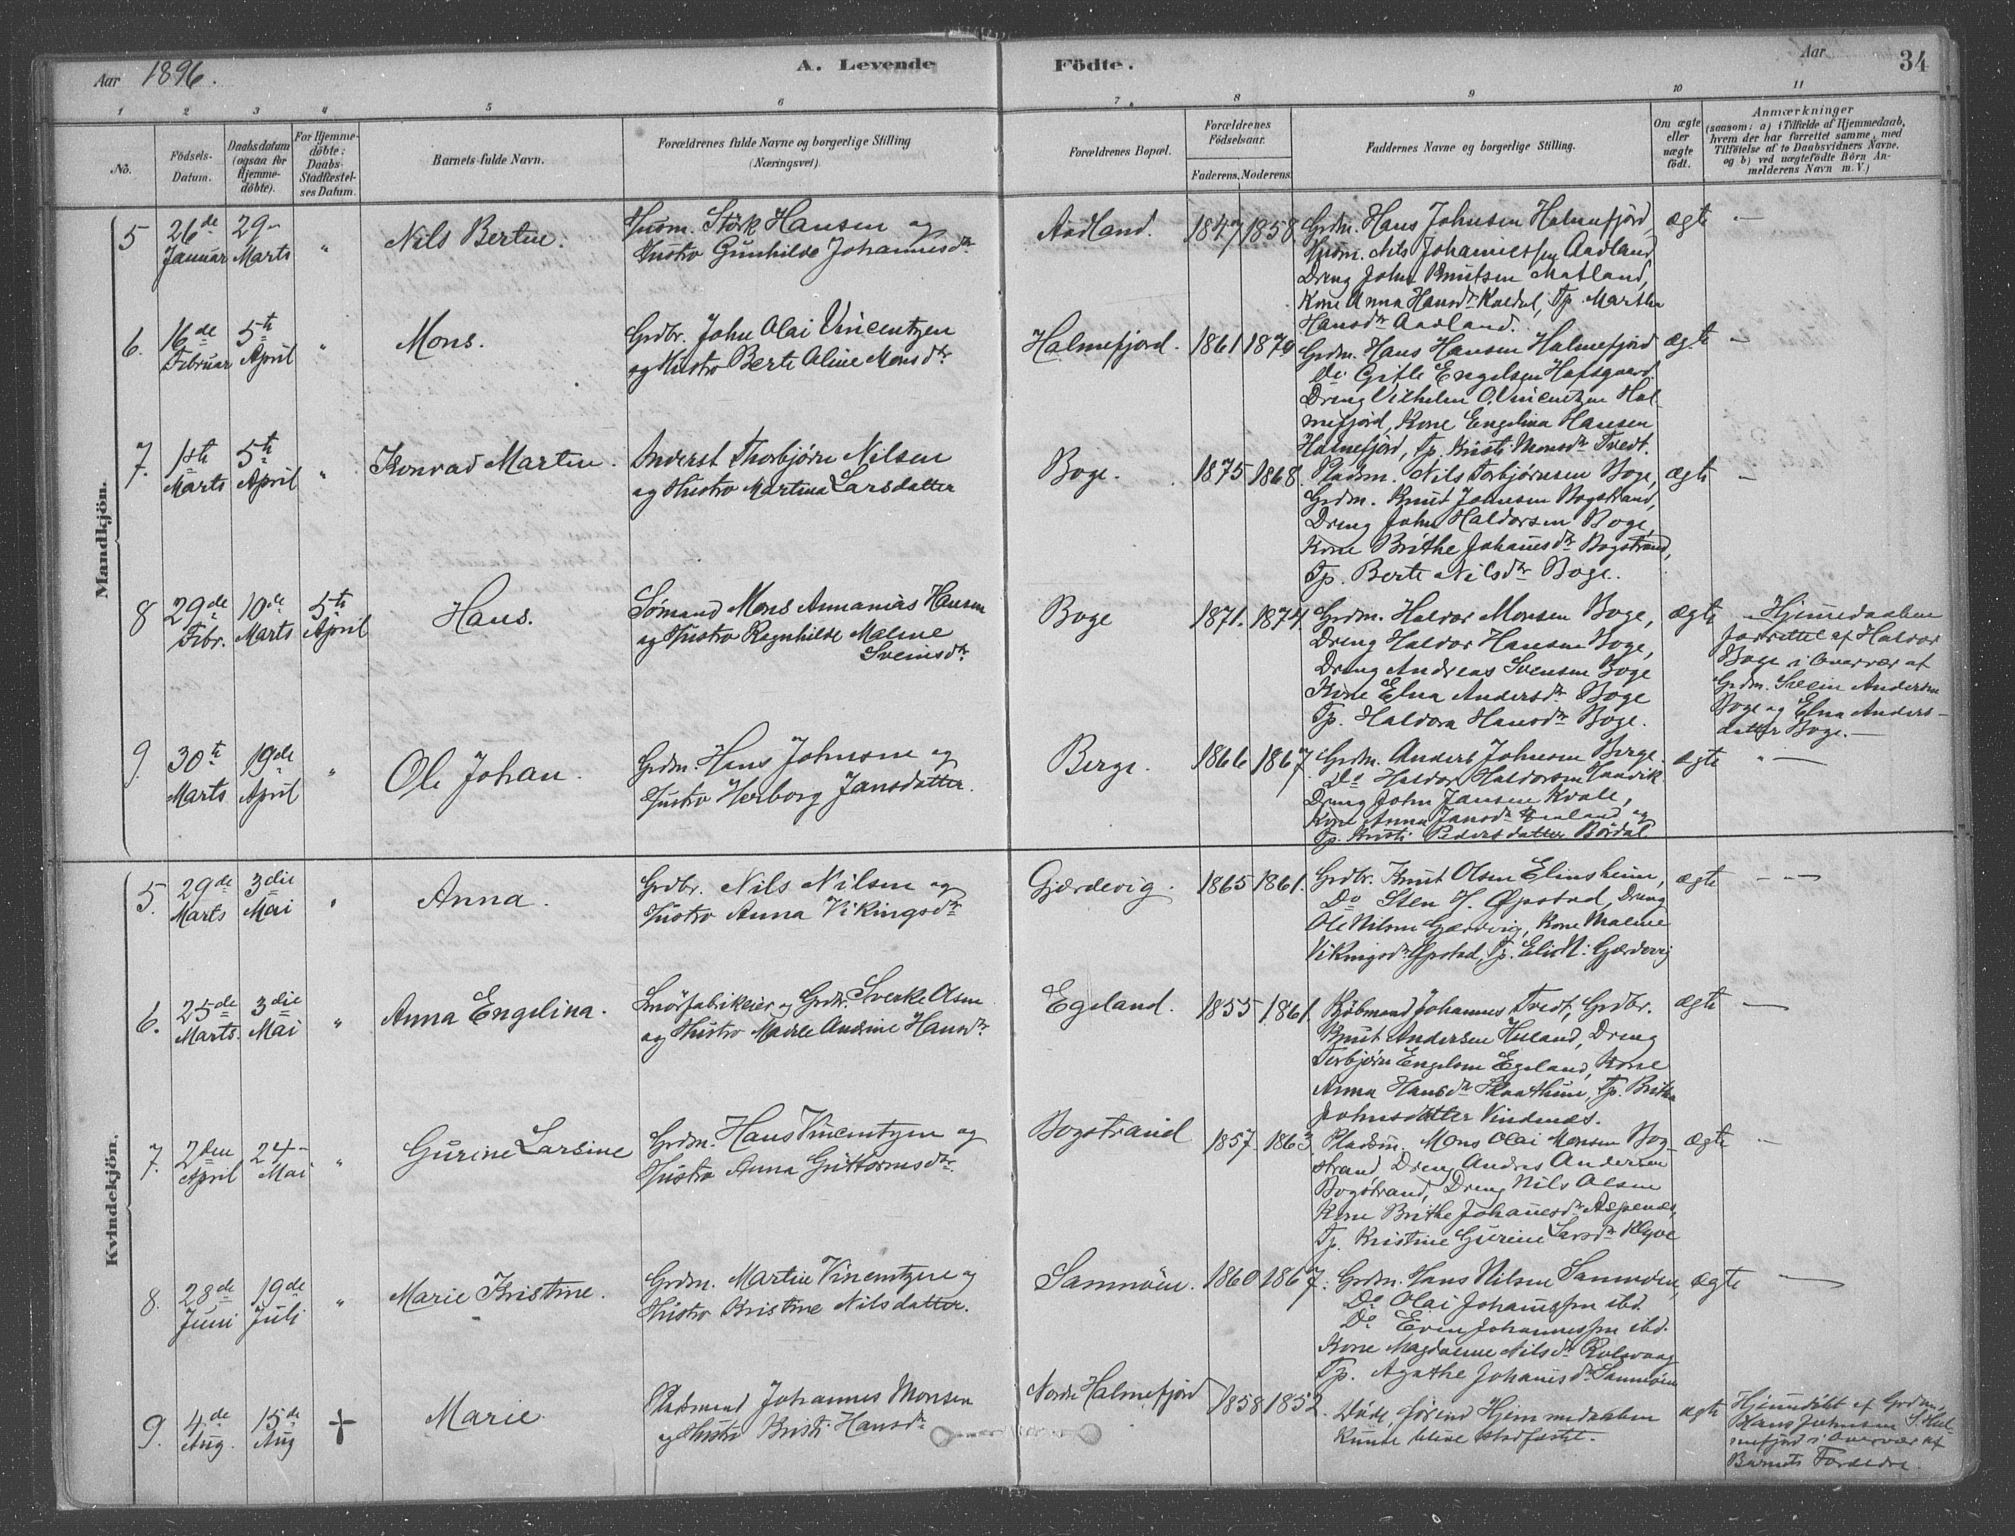 Aar 1896.
A. Levende
Fødte.
Aar
34
1 2 3 4 5 6 7 8 9 10 11
No.
Fødsels-Datum.
Daabsdatum (ogsaa for Hjemme-døbte).
For Hjemme-døbte: Daabs-Stadfæstel-ses Datum.
Barnets fulde Navn.
Forældrenes fulde Navne og borgerlige Stilling
(Næringsvei)
Forældrenes Bopæl.
Forældrenes Fødselsaar.
Faderens. Moderens.
Faddernes Navne og borgerlige Stilling.
Om ægte eller uægte født.
Anmærkninger
(saasom: a) i Tilfælde af Hjemmedaab,
hvem der har forrettet samme, med
Tilføielse af to Daabsvidners Navne.
og b) ved uægtefødte Børn An-
melderens Navn m. V.)
Mandkjön.
5 26de Januar 29- Marts " Nils Bertin. Husm. Störk Hansen og
Hustro Gunhilde Johannesdtr
Aadland. 1847 1858. Grdm. Hans Johnsen Halmefjord, ægte —
Husm. Nils Johannessen Aadland
Dreng John Knutsen Matland,
Kone Anna Hansdtr Kaldal, Tp. Martha
Hansdtr Aadland.
6. 16de Februar 5th April " Mons. Grdbr. John Olai Vincentzen
og Hustro Berte Oline Monsdtr
Halmefjord. 1861 1870 Grdm. Hans Hansen Halmefjord ægte —
Do Gitle Engelsen Hafsgaard
Dreng Vilhelm O. Vincentzen Hal-
mefjord, Kone Engelina Hansen
Halmefjord, Tp. Kristi Monsdtr Tvedt.
7. 14th Marts 5th April " Konrad Martin. Anderst Thorbjørn Nilsen
og Hustro Martina Larsdatter
Boge. 1875 1868. Pladsm. Nils Torbjørnsen Boge, ægte —
Grdm. Knut Johnsen Bogstrand,
Dreng John Haldorsen Boge,
Kone Brithe Johannesdtr Bogstrand,
Tp. Berte Nilsdtr Boge.
8 29de Febr. 10de Marts 5th April Hans. Sømand Mons Annanias Hansen
og Hustro Ragnhilde Malene
Sveinsdtr
Boge 1871. 1874. Grdm. Haldor Monsen Boge, ægte — Hjemmedaaben
Dreng Haldor Hansen Boge,
Dreng Andreas Svensen Boge
Kone Elna Andersdtr Boge
Tp. Haldora Hansdtr Boge.
forrettet af Haldor
Boge i Overvær af
Grdm. Svein Andersen
Boge og Elna Anders-
datter Boge. —
9. 30te Marts 19de April " Ole Johan. Grdm. Hans Johnsen og
Hustro Herborg Jansdatter.
Berge. 1866 1867 Grdm. Anders Johnsen Berge. ægte " —
Do Haldor Haldorsen Haavik
Dreng John Jansen Kvale,
Kone Anna Jansdtr og
Tp. Kristi Pedersdatter Børdal
Kvindekjön.
5. 29de Marts 3die Mai " Anna. Grdbr. Nils Nilsen og
Hustro Anna Vikingsdtr
Gjærdevig. 1865 1861. Grdbr. Knut Olsen Elinsheim, ægte — —
Do Sten H. Øpstad, Dreng
Ole Nilsen Gjærdevig, Kone Malene
Vikingsdtr Øpstad, Tp. Elis N. Gjærdevig
6. 25de Marts. 3die Mai " Anna Engelina. Smörfabrikeier og Grdbr. Sverke Olsen
og Hustro Marie Andrine Hansdtr
Egeland. 1855 1861. Købmand Johannes Tvedt, Grdbr. ægte —
Knut Andersen Heland, Dreng
Torbjørn Engelsen Egeland, Kone
Anna Hansdtr Skaathun, Tp. Brithe
Johnsdatter Vindenes.
7. 2den April 24- Mai " Gurine Larsine Grdm. Hans Vincentzen og
Hustro Anna Guttormsdtr
Bogstrand 1857. 1863. Pladsm. Mons Olai Monsen Bog- ægte —
strand Dreng Andreas Andersen
Bogstrand, Dreng Nils Olsen
Kone Brithe Johannesdtr Aspenes,
Tp. Kristine Gurine Larsdtr Klyve
8. 28de Juni 19de Juli " Marie Kristine. Grdm. Martin Vincentzen og
Hustro Kristine Nilsdatter.
Samnöen. 1860 1867. Grdm. Hans Nilsen Samnöen, ægte —
Do Olai Johannessen ibd.
Do Even Johannessen ibd.
Kone Magdalene Nilsdtr Rolsvaag
Tp. Agathe Johannesdtr Samnöen
9. 4de Aug. 15de Aug + Marie. Pladsmand Johannes Monsen
og Hustro Kristi Hansdtr
Nordre Halmefjord 1858 1852. Døde, førend Hjemmedaaben ægte Hjemmedøbt af Grdm.
kunde blive stadfæstet.
Hans Johnsen S. Hal-
mefjord i Overvær af
Barnets Forældre.